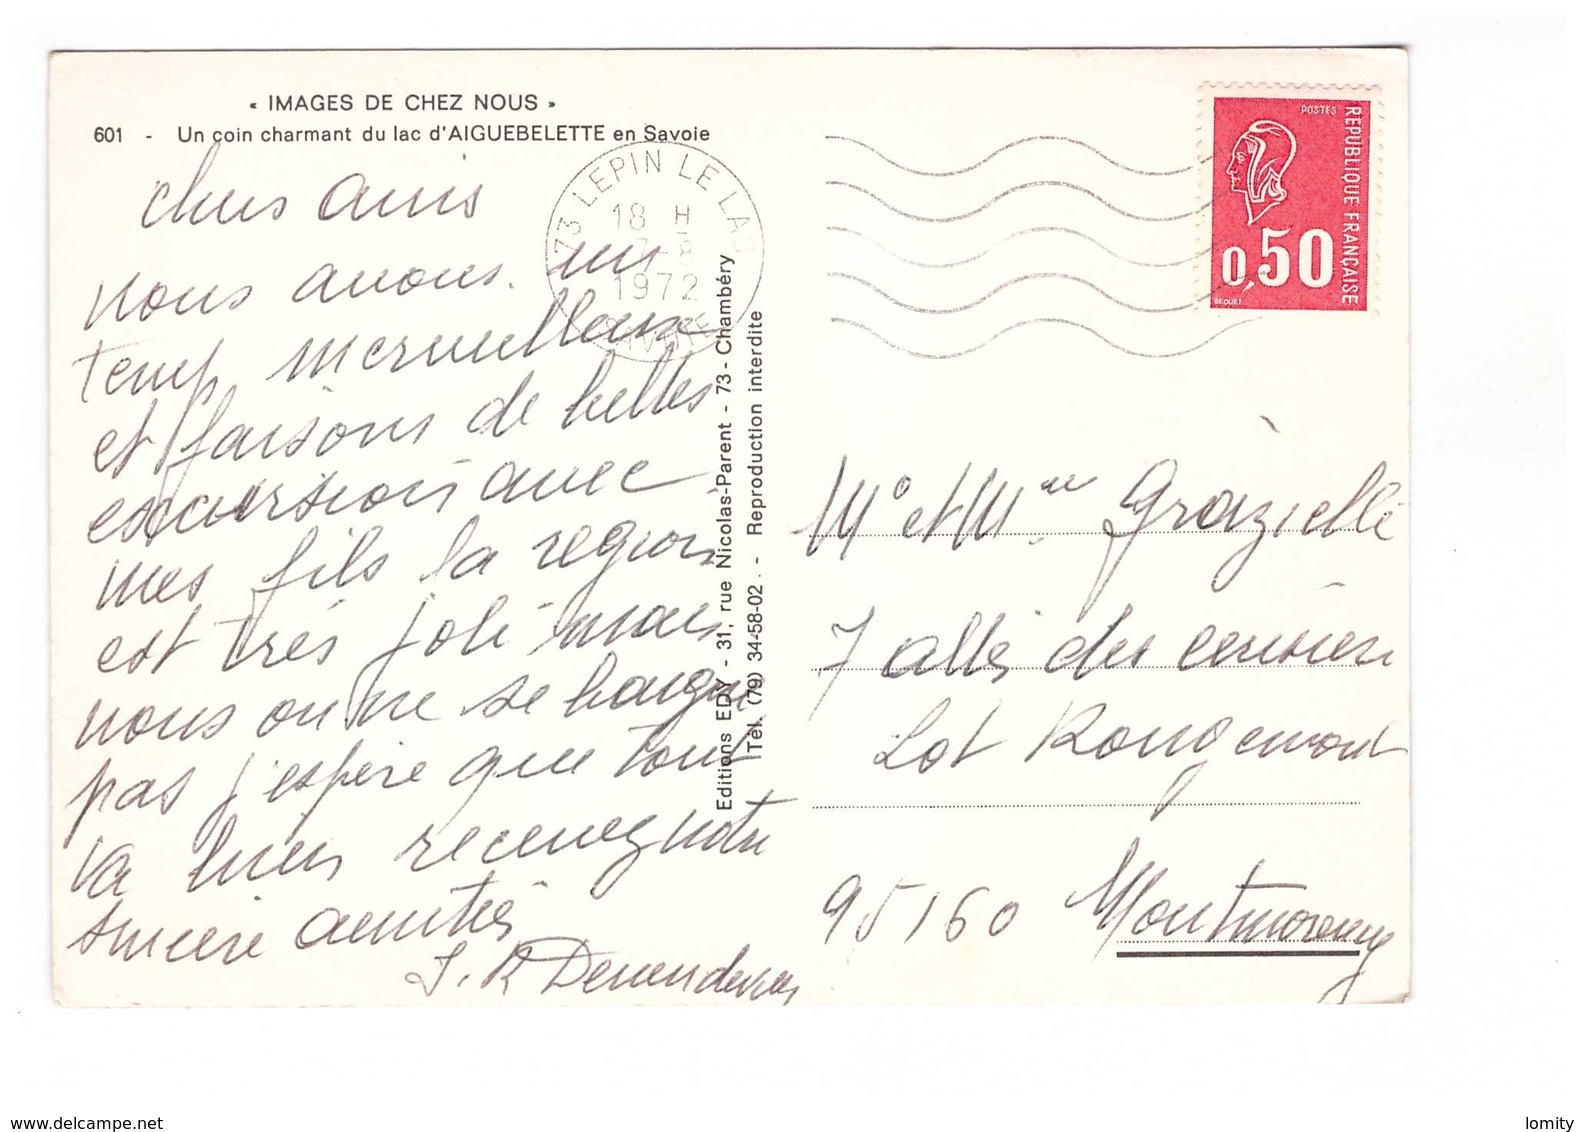 « IMAGES DE CHEZ NOUS »
601 - Un coin charmant du lac d'AIGUEBELETTE en Savoie
chers amis
nous avons un
temp merveilleux
et faisons de belles
excursion avec
mes fils la région
est très joli mais
nous on ne se baigne
pas j'espère que tout
va bien recevez notre
sincère amitiés
J. R
73 LEPIN LE LAC
18 H
7-8
1972
SAVOIE
Editions EDY - 31, rue Nicolas-Parent - 73 - Chambéry
Tél. (79) 34-58-02. - Reproduction interdite
POSTES
REPUBLIQUE FRANÇAISE
0,50
BEQUET
Mr et Mme Grazielle
7 allés des cerisiers
Lot Rougemont
95160 Montmorency
www.delcampe.net
lomity